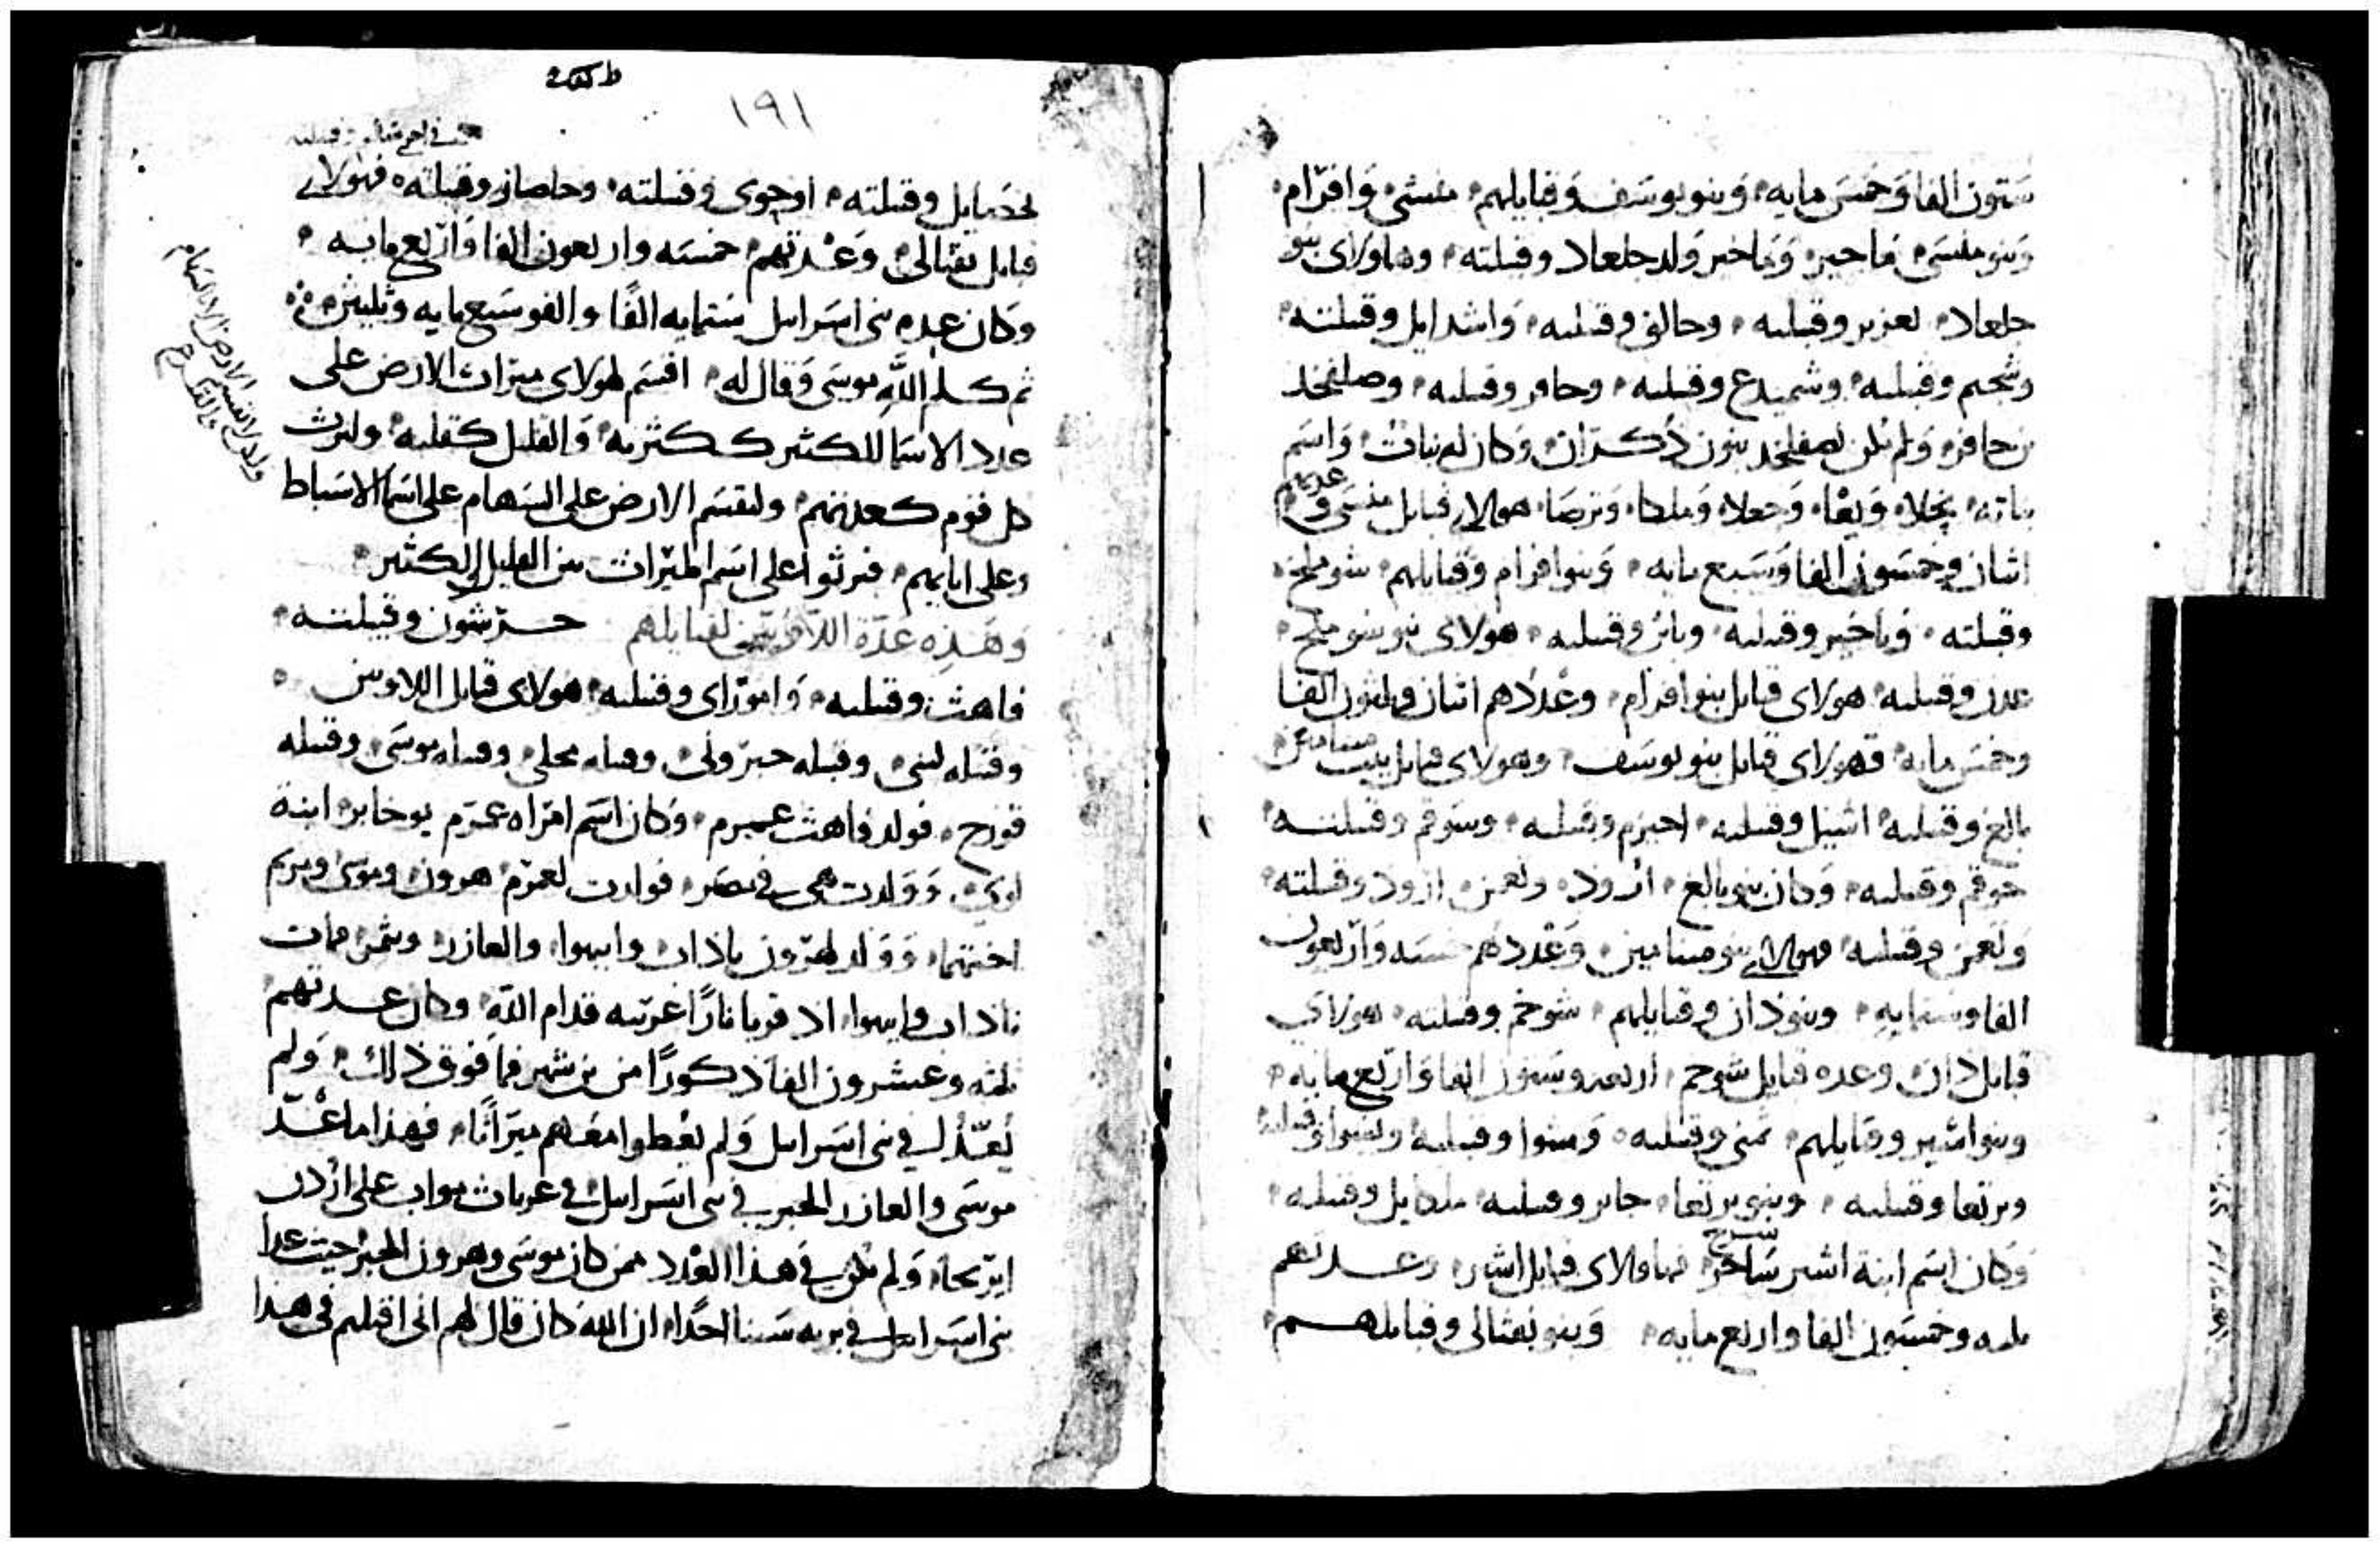 ستون الفا وخمس مايه وبنو يوسف وقبايلهم منسى وافرام
وبنو منسى ماخير وماخير ولد جلعاد وقبلته وهاولاى بنو
جلعاد لعزير وقبلته وحالق وقبلته واشدايل وقبلته
وشجم وقبلته وشميدع وقبلته وحافر وقبلته وصلفحد
بن حافر ولم يكن لصفلحد بنون ذكران وكان له بنات واسم
بناته محلا ونعا وحجلا وملكا وترصا هولاى قبايل منسى وعددهم
اثنان وخمسون الفا وسبع مايه وبنو افرام وقبايلهم شوملخ
وقبلته وباخير وقبلته وقبلته هولاى بنو شوملخ
عدن وقبلته هولاى قبايل بنو افرام وعددهم اثنان وثلثون الفا
وخمس مايه فهولاى قبايل بنو يوسف وهولاى قبايل بنيامين
بالغ وقبلته اشبيل وقبلته احيرم وقبلته وسوفم وقبلته
حوفم وقبلته وكان بنو بالغ ارود ونعمن ارود وقبلته
ونعمن وقبلته فهولاى بنو بنيامين وعددهم خمسه واربعون
الفا وستمايه وبنو دان وقبايلهم شوخم وقبلته هولاى
قبايل دان وعده قبايل شوحم اربعه وستون الفا واربع مايه
وبنو اشير وقبايلهم يمنى وقبلته ويشوا وقبلته
وبرنعا وقبلته وبنو برنعا حابر وقبلته ملكايل وقبلته
وكان اسم ابنة اشير ساحر سرح فهاولاى قبايل اشير وعدتهم
ثلثه وخمسون الفا واربع مايه وبنو نفتالى وقبايلهم
١٩١
لحصايل وقبلته اوجوى وقبلته وحاصار وقبلته فهولاى
قبايل نفتالى وعدتهم خمسه واربعون الفا واربع مايه
وكان عده بنى اسرايل ستمايه الفًا والف وسبع مايه وثلثين
ثم كلم الله موسى وقال له اقسم لهولاى ميراث الارض على
عدد الاسما للكثير ككثرته والقليل كقلته وليرث
كل قوم كعدتهم ولتقسم الارض على السهام على اسما الاسباط
وعلى ابايهم فيرثوا على اسم الميراث بين القليل والكثير
وهذه عدة اللاويين لقبايلهم حرشون وقبلته
فاهث وقبلته وامورارى وقبلته هولاى قبايل اللاويين
وقبله لبنى وقبله حبرونى وقبله محلى وقبله موسى وقبله
قورح فولد فاهث عمرم وكان اسم امراه عمرم يوخابر ابنة
لوى وولدت هى فى مصر فولدت لعمرم هرون وموسى ومريم
اختهما وولد لهرون ناداب وابيهوا والعازر ويثمر ومات
ناداب وابيهوا اذ قربا نارًا غريبه قدام الله وكان عدتهم
ثلثه وعشرون الفا ذكورًا من بن شهر فما فوق ذلك ولم
يعدل فى بنى اسرايل ولم يعطوا معهم ميراثا فهذا ما عد
موسى والعازر الحبر فى بنى اسرايل فى عربات مواب على اردن
ايريحا ولم يكن فى هذا العدد ممن كان موسى وهرون الحبر حيث عدا
بنى اسرايل فى بريه سينا احدًا ان الله كان قال لهم انى اقتلهم فى هذا